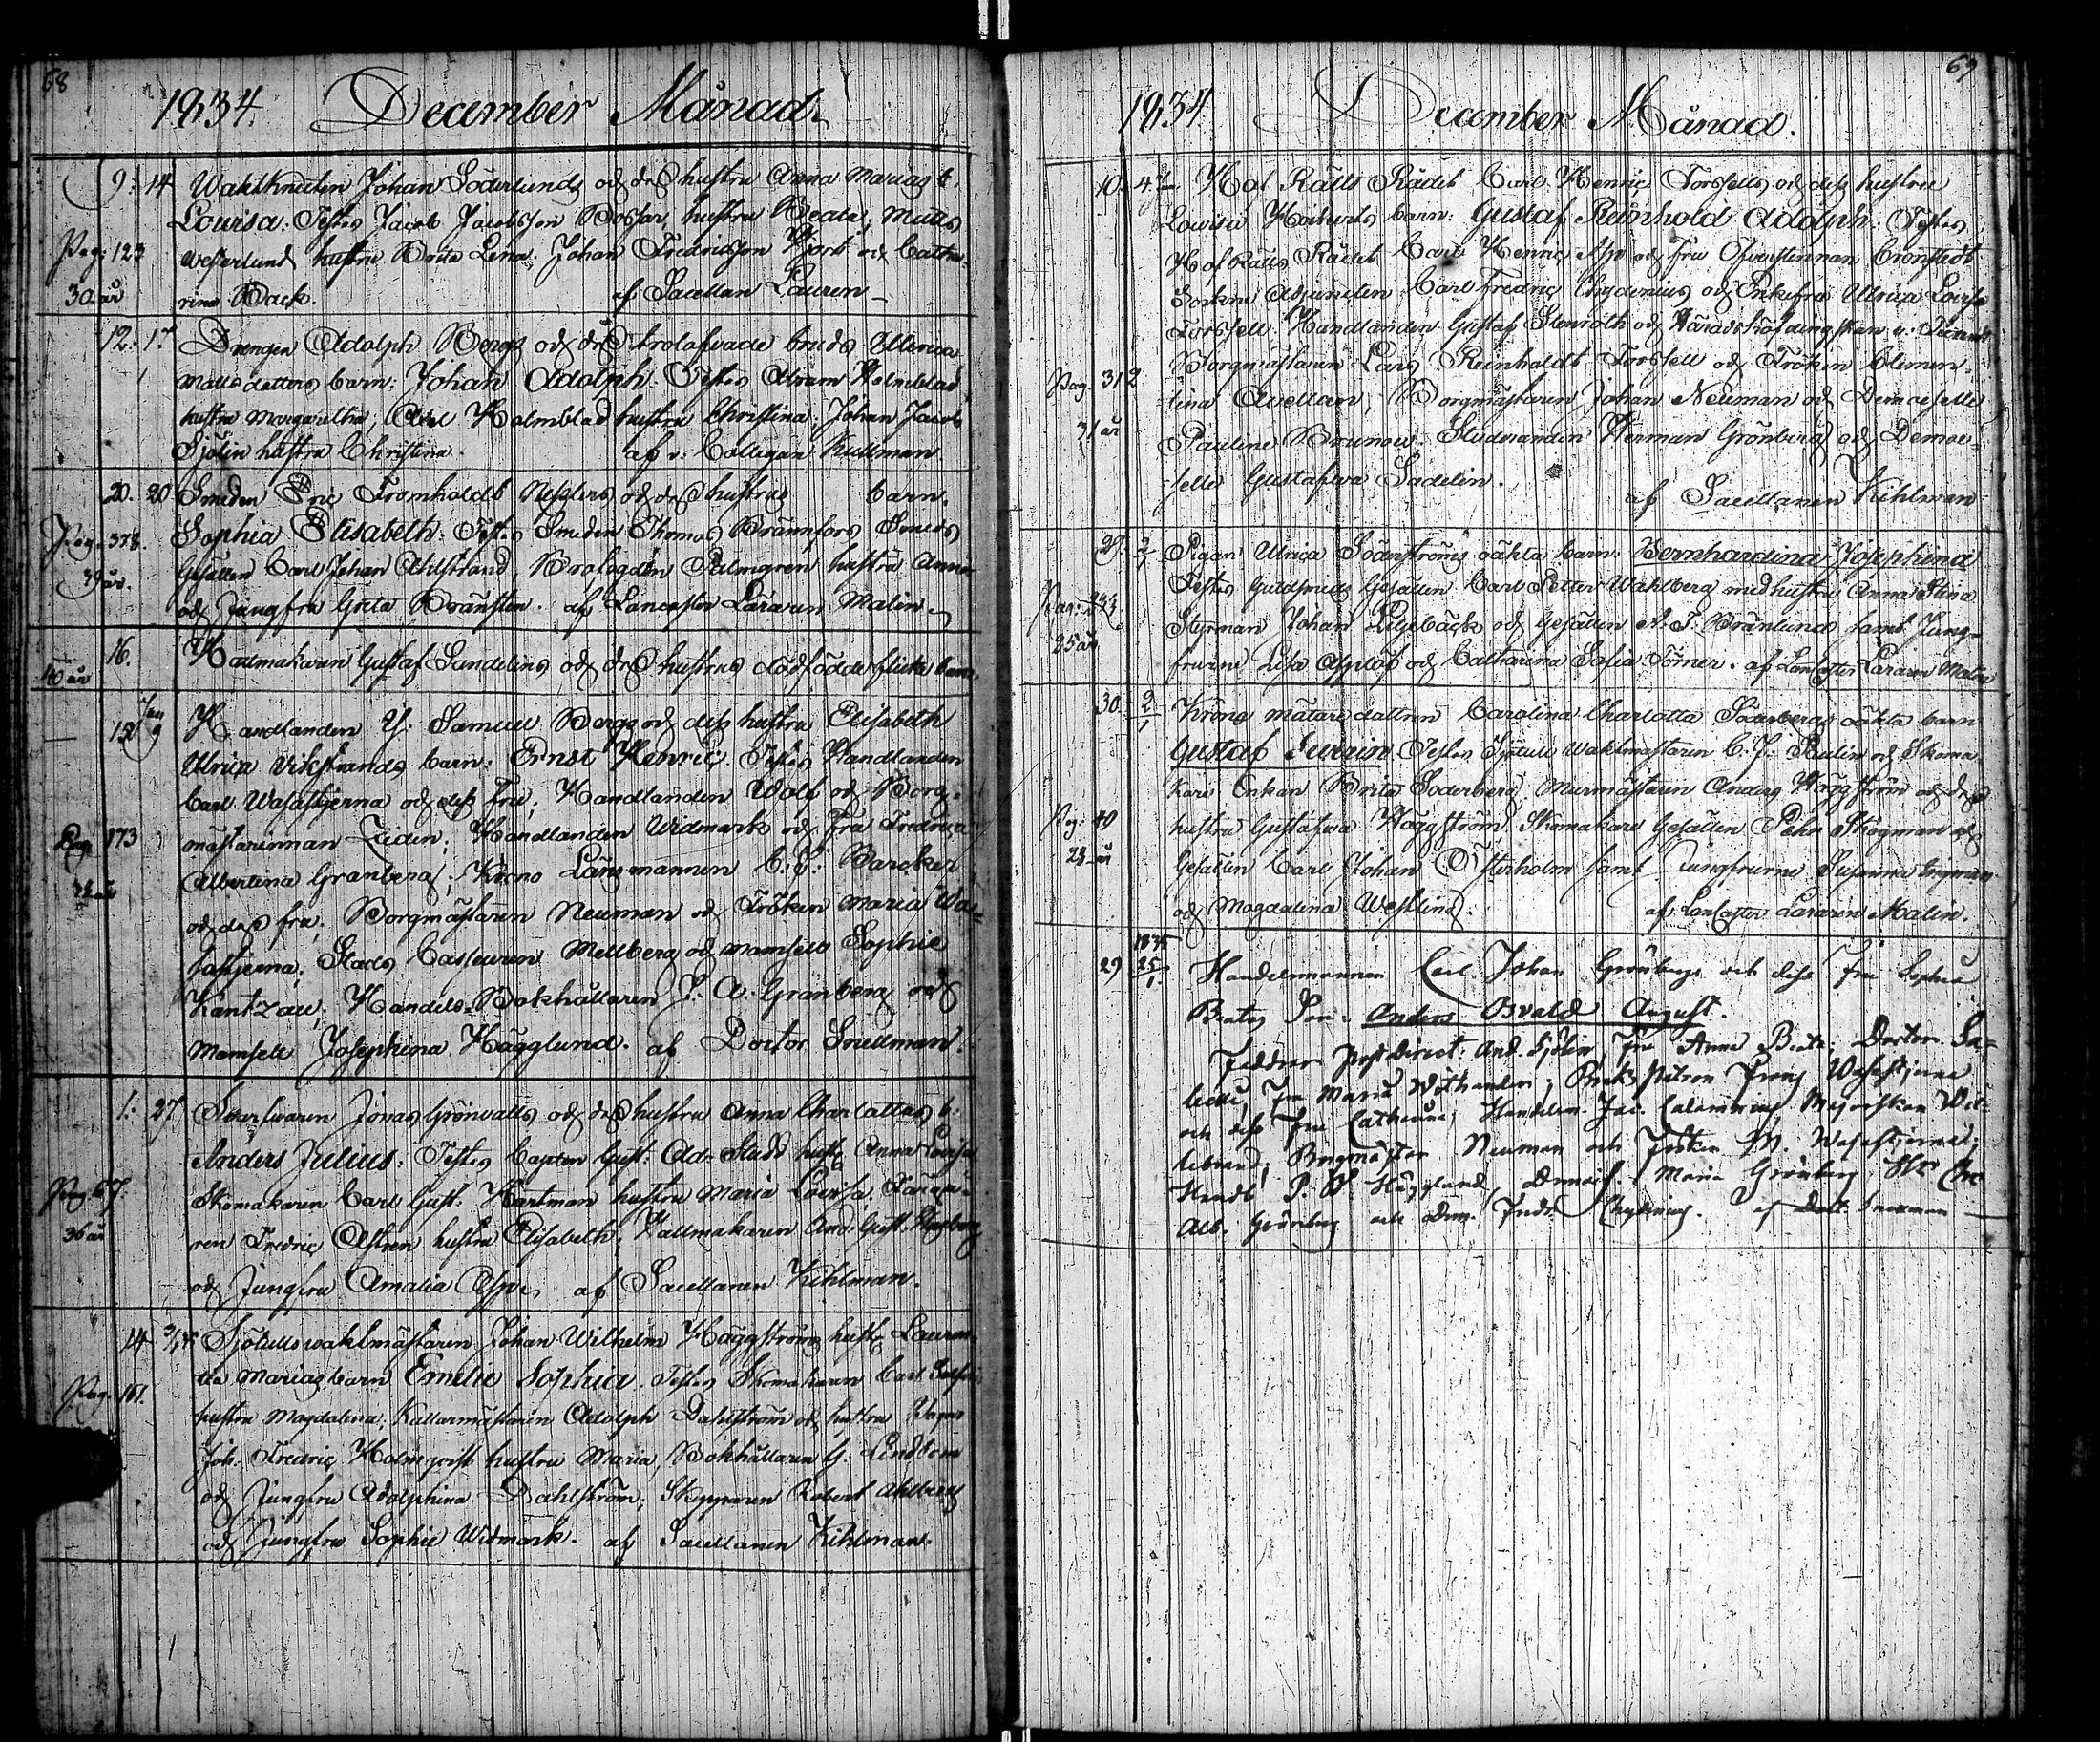 68
1834. December Månad.
9: 14 Waktknekten Johan Söderlunds och dess hustru Anna Marias b.
Lovisa: Testes Jacob Jacobsson Bossar, hustru Beata; Matts
Pag: 123 Westerlund hustru Brita Lena. Johan Fredricsson Hjort och Catha-
30 år rina Back. af Sacellan Lauren
12: 17 Drengen Adolph Bergs och dess trolofvade bruds Ulrica
Mattsdotters barn: Johan Adolph. Testes Abram Holmblad
hustru Margaretha, Axel Holmblad hustru Christina; Johan Jacob
Sjölin hustru Christina. af v. Collegan Kullman
20. 20 Smeden Eric Fromholdt och dess hustrus barn.
Pag. 378. Sophia Elisabeth. Testes Smeden Thomas Brännfors Smeds
39 år. Gesällen Carl Johan Ahlstrand, Palmgren hustru Anna
och Jungfru Greta af Lancaster Läraren Malin
16. Hattmakaren Gustaf Sandelins och dess hustrus dödfödde flicke barn.
40 år
12 Jan 9 Handlanden J. Samuel Bergs och dess hustru Elisabeth
Ulrica Vikstrands barn: Ernst Henric. Testes Handlanden
Carl Wasastjerna och dess fru; Handlanden Wolf och Borg-
Pag. 173 mästarinnan Zedin; Handlanden Widmark och Fru Fredrica
Albertina Granberg; Krono Länsmannen C. J. Barcker
och dess fru, Borgmästaren Neuman och Fröken Maria Wa-
sastjerna; Stads Casseuren Mellberg och Mamsell Sophie
Kantzau; Handels-Bokhållaren J. A. Granberg och
Mamsell Josephina Hägglund. af Doctor Snellman.
1: 27 Svarfvaren Jonas Grönvalls och dess hustru Anna Charlottas b:
Anders Julius: Testes Capten Gust: Ad: hust: Anna Lovisa
Pag 67. Skomakaren Carl Gust. Hartman hustru Maria Lovisa,
36 år ren Fredric Astren hustru Elisabeth, Hattmakaren And: Gust.
och Jungfru Amalia Asp af Sacellanen Kihlman.
14 Sjötullswaktmästaren Johan Wilhelm Häggströms hust:
Marias barn Emelie Sophia. Testes Skomakaren Carl
Pag. 161. hustru Magdalina. Källarmästaren Adolph Dahlström och hustru
Joh. Fredric Holmqvist hustru Maria, Bokhållaren G. Lindbom
och Jungfru Adolphina Dahlström; Skepparen Robert Ahlberg
och Jungfru Sophie Widmark. af Sacellanen Kihlman.
69
1834 December Månad.
10. 4/1 Hof Rätts Rådet Carl Henric Forssells och dess hustru
Lovisa barn: Gustaf Reinhold Adolph. Testes
Hof Rätts Rådet Carl Henric Asp och Fru Öfverstinnan Cronstedt
Adjuncten Carl Fredric Chydenius och Enkefru Ulrica Lovisa
Forssell. Handlanden Gustaf Stenroth och Häradshöfdingskan
Pag. 312 Borgmästaren Lars Reinholdt Forssell och Fröken Clemen-
tina Avellan; Borgmästaren Johan Neuman och Demoiselle
31 år Pauline Brunow. Studeranden Herman Grönberg och Demoi-
selle Gustafva Sadelin. af Sacellanen Kihlman
29. 2/1 Pigan Ulrica Söderströms oäkta barn: Bernhardina Josephina
Testes Guldsmeds Gesällen Carl Petter Wahlberg med hustru Anna Stina
Styrman Johan Liljebäck och Gesällen A. J. Bränlund samt Jung-
25 år fruarne Lisa Applöf och Catharina Sofia Törner. af Lancaster Läraren Malin
30. 2/1 Krono mätare dottren Carolina Charlotta Söderbergs oäkta barn
Gustaf Severin. Testes Sjötulls waktmästaren C. J. Paulin och Skoma-
kare Enkan Brita Söderberg; Murmästaren Anders Häggström och dess
Pag: 40 hustru Gustafva Häggström, Skomakare Gesällen Pehr Skogman och
28 år Gesällen Carl Johan Österholm samt Jungfrurne Susanna Engman
och Magdalina Westlind. af Lancaster Läraren Malin.
29 1835 25/1 Handelsmannen Carl Johan Grönbergs och dess Fru Sophia
Beatas Son: Anders Osvald August.
Faddrar Postdirect: And. Sjöberg, Fru Anna Beata, Doctor
Fru Maria Wethander; Bruks Patron Franz Wasastjerna
och dess Fru Catharina; Handelsm. Jac. Calamnius Majorskan
Borgmästar Neuman och Fröken M. Wasastjerna;
Handl. P. W. Hägglund, Demois. Maria Grönberg,
Alb. Grönberg och Dem. Fredr. Chydenius. af Doct. Snellman